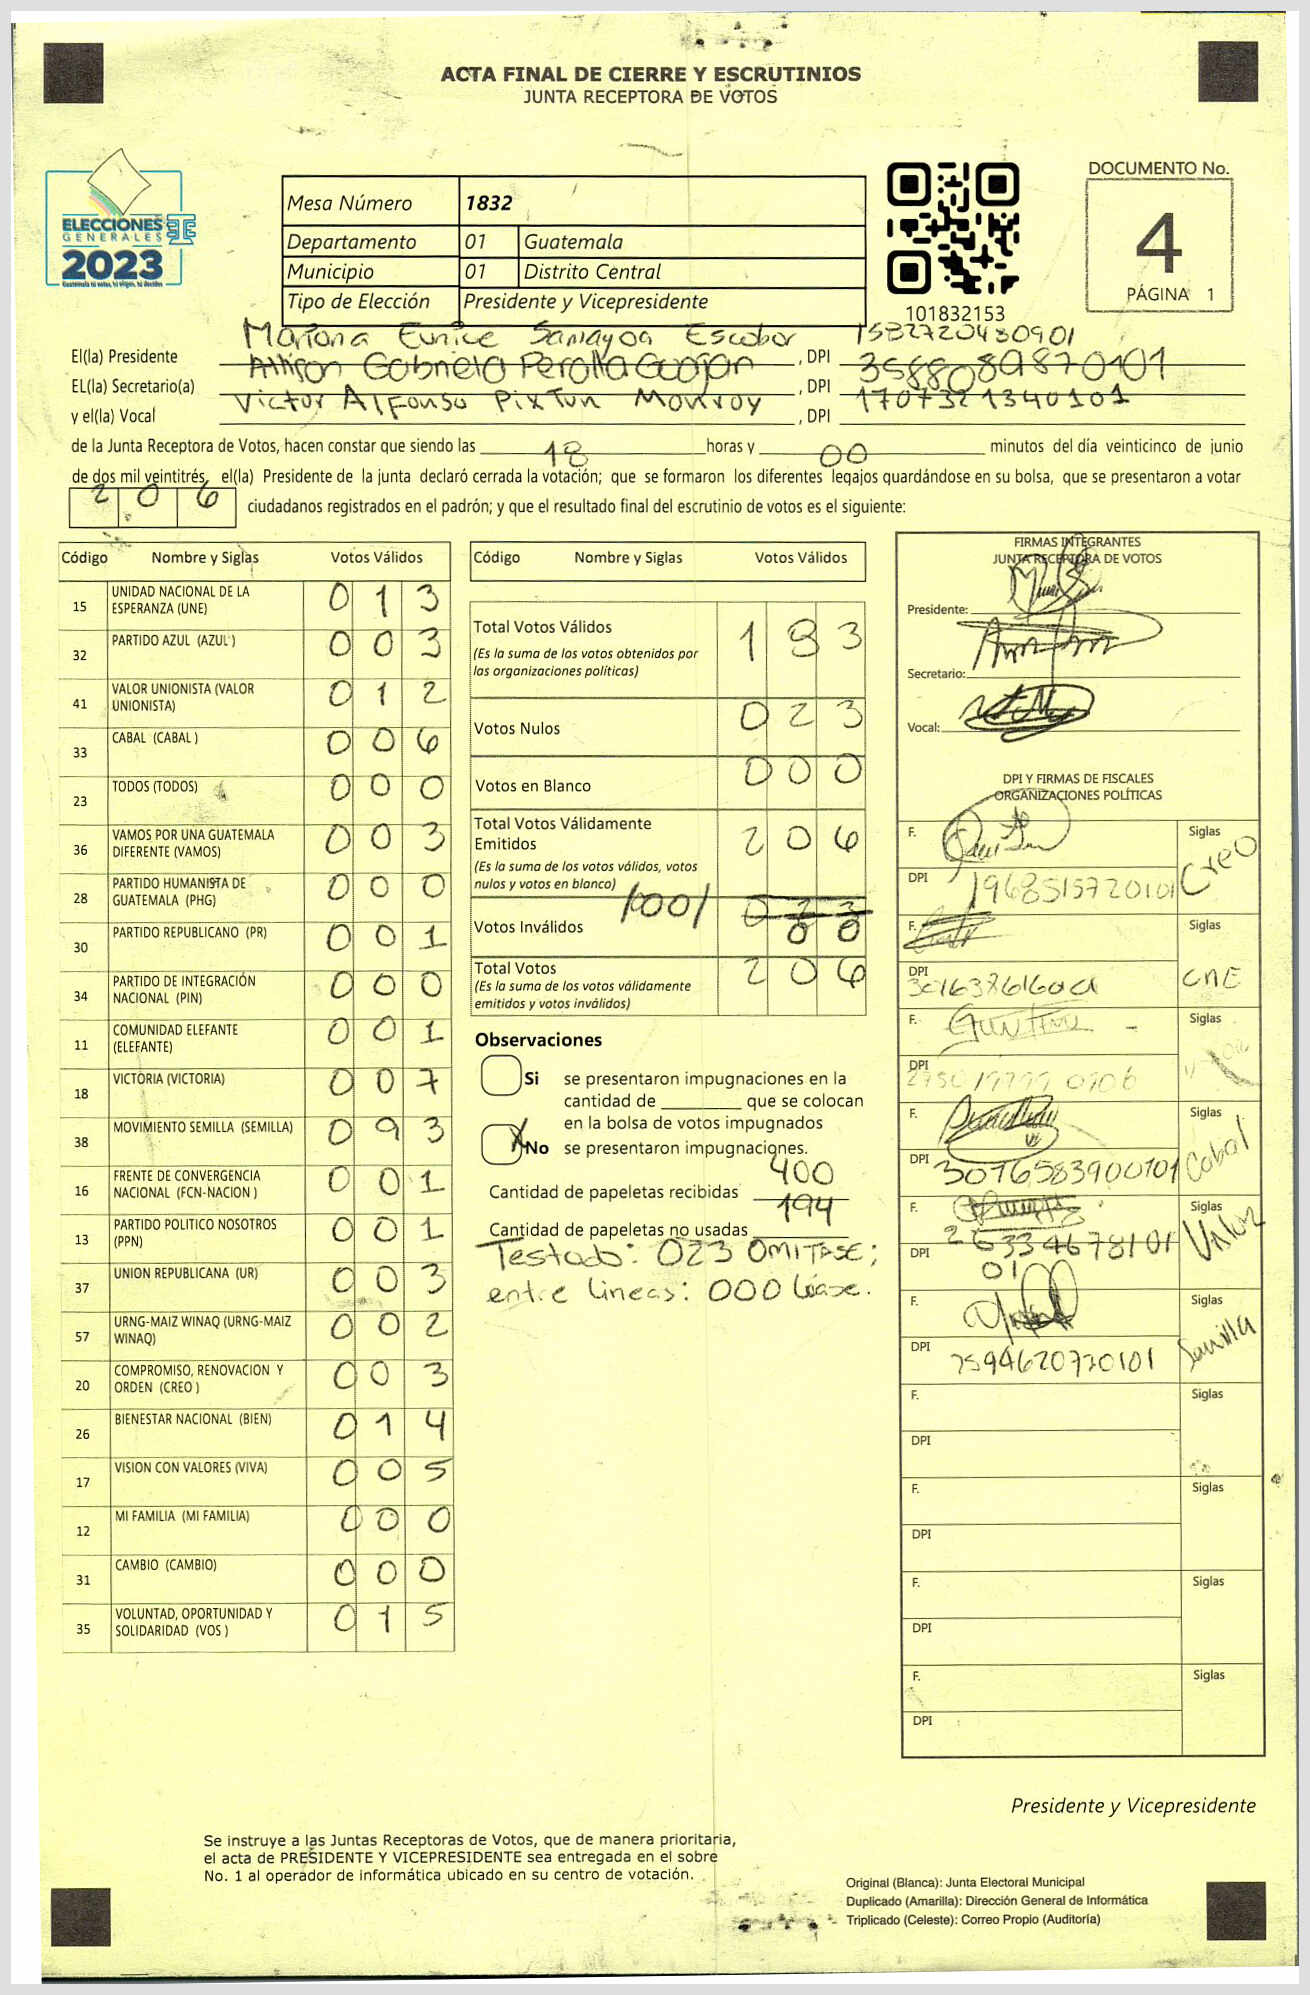 ACTA FINAL DE CIERRE Y ESCRUTINIOS
JUNTA RECEPTORA DE VOTOS
ELECCIONES
GENERALES
2023
Mesa Número 1832
Departamento 01 Guatemala
Municipio 01 Distrito Central
Tipo de Elección Presidente y Vicepresidente
101832153
DOCUMENTO No.
4
PÁGINA 1
Mariana Eunice Samayoa Escobar 1582720430901
El(la) Presidente , DPI
Gabriela 3588089870101
EL(la) Secretario(a) , DPI
Victor Alfonso PixTun Monroy 1707321340101
y el(la) Vocal , DPI
de la Junta Receptora de Votos, hacen constar que siendo las 18 horas y 00 minutos del día veinticinco de junio
de dos mil veintitrés, el(la) Presidente de la junta declaró cerrada la votación; que se formaron los diferentes legajos guardándose en su bolsa, que se presentaron a votar
206 ciudadanos registrados en el padrón; y que el resultado final del escrutinio de votos es el siguiente:
Código Nombre y Siglas Votos Válidos
15 UNIDAD NACIONAL DE LA ESPERANZA (UNE) 0 1 3
32 PARTIDO AZUL (AZUL ) 0 0 3
41 VALOR UNIONISTA (VALOR UNIONISTA) 0 1 2
33 CABAL (CABAL ) 0 0 6
23 TODOS (TODOS) 0 0 0
36 VAMOS POR UNA GUATEMALA DIFERENTE (VAMOS) 0 0 3
28 PARTIDO HUMANISTA DE GUATEMALA (PHG) 0 0 0
30 PARTIDO REPUBLICANO (PR) 0 0 1
34 PARTIDO DE INTEGRACIÓN NACIONAL (PIN) 0 0 0
11 COMUNIDAD ELEFANTE (ELEFANTE) 0 0 1
18 VICTORIA (VICTORIA) 0 0 7
38 MOVIMIENTO SEMILLA (SEMILLA) 0 9 3
16 FRENTE DE CONVERGENCIA NACIONAL (FCN-NACION ) 0 0 1
13 PARTIDO POLITICO NOSOTROS (PPN) 0 0 1
37 UNION REPUBLICANA (UR) 0 0 3
57 URNG-MAIZ WINAQ (URNG-MAIZ WINAQ) 0 0 2
20 COMPROMISO, RENOVACION Y ORDEN (CREO ) 0 0 3
26 BIENESTAR NACIONAL (BIEN) 0 1 4
17 VISION CON VALORES (VIVA) 0 0 5
12 MI FAMILIA (MI FAMILIA) 0 0 0
31 CAMBIO (CAMBIO) 0 0 0
35 VOLUNTAD, OPORTUNIDAD Y SOLIDARIDAD (VOS ) 0 1 5
Código Nombre y Siglas Votos Válidos
Total Votos Válidos 1 8 3
(Es la suma de los votos obtenidos por
las organizaciones políticas)
Votos Nulos 0 2 3
Votos en Blanco 0 0 0
Total Votos Válidamente
Emitidos 2 0 6
(Es la suma de los votos válidos, votos
nulos y votos en blanco)
Votos Inválidos /000/ 0 2 3
0 0
Total Votos 2 0 6
(Es la suma de los votos válidamente
emitidos y votos inválidos)
Observaciones
Si se presentaron impugnaciones en la
cantidad de ________ que se colocan
en la bolsa de votos impugnados
X No se presentaron impugnaciones.
Cantidad de papeletas recibidas 400
Cantidad de papeletas no usadas 194
Testado: 023 OMITASE;
entre lineas: 000 léase.
FIRMAS INTEGRANTES
JUNTA RECEPTORA DE VOTOS
Presidente:
Secretario:
Vocal:
DPI Y FIRMAS DE FISCALES
ORGANIZACIONES POLÍTICAS
F. Siglas
DPI 1968515720101 Creo
F. Siglas
DPI
F. Siglas
DPI
F. Siglas
DPI 3016583900101 Cabal
F. Siglas
DPI 26334678101 Valor
01
F. Siglas
DPI Semilla
F. Siglas
DPI
F. Siglas
DPI
F. Siglas
DPI
F. Siglas
DPI
Presidente y Vicepresidente
Se instruye a las Juntas Receptoras de Votos, que de manera prioritaria,
el acta de PRESIDENTE Y VICEPRESIDENTE sea entregada en el sobre
No. 1 al operador de informática ubicado en su centro de votación.
Original (Blanca): Junta Electoral Municipal
Duplicado (Amarilla): Dirección General de Informática
Triplicado (Celeste): Correo Propio (Auditoría)